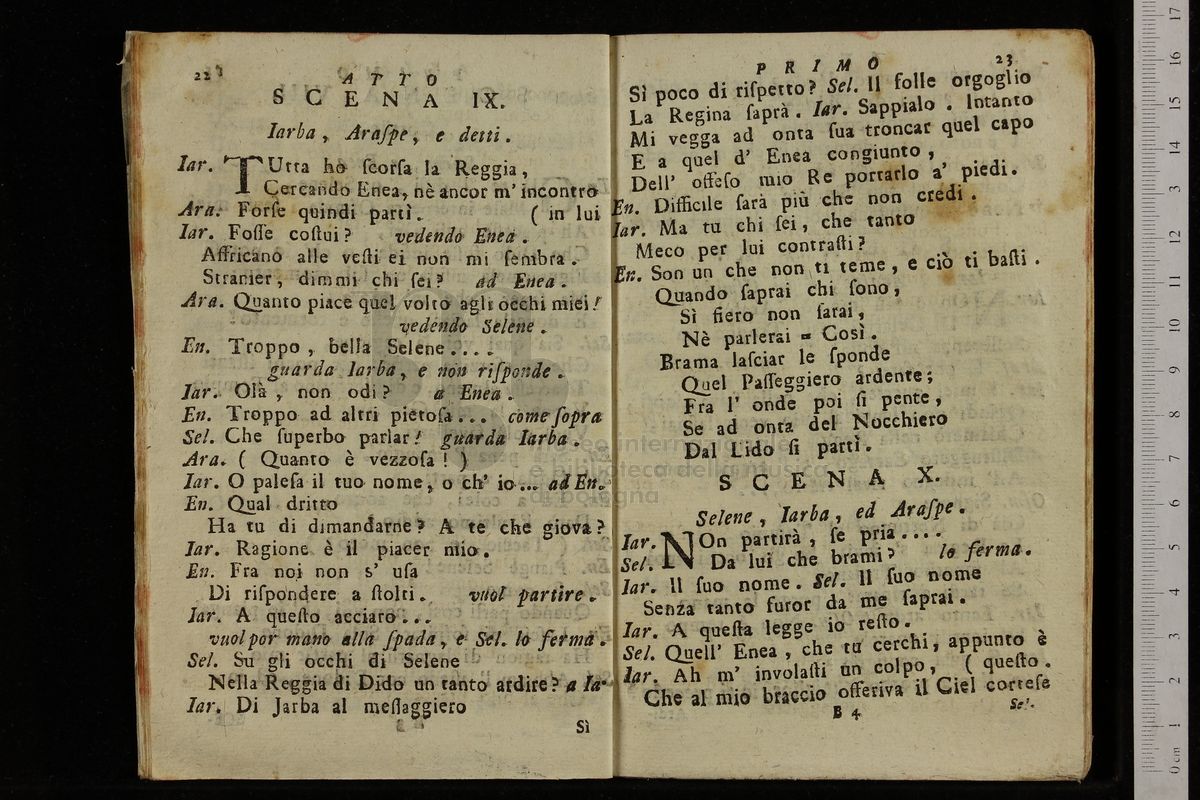 22
ATTO
SCENA IX.
Iarba, Araſpe, e detti.
Iar. TUtta ho ſcorſa la Reggia,
Cercando Enea, nè ancor m' incontro
Ara. Forſe quindi partì. ( in lui
Iar. Foſſe coſtui? vedendo Enea.
Affricano alle veſti ei non mi ſembra.
Stranier, dimmi chi ſei? ad Enea.
Ara. Quanto piace quel volto agli occhi miei!
vedendo Selene.
En. Troppo, bella Selene....
guarda Iarba, e non riſponde.
Iar. Olà, non odi? a Enea.
En. Troppo ad altri pietoſa... come ſopra
Sel. Che ſuperbo parlar! guarda Iarba.
Ara. ( Quanto è vezzoſa! )
Iar. O paleſa il tuo nome, o ch' io... ad En.
En. Qual dritto
Ha tu di dimandarne? A te che giova?
Iar. Ragione è il piacer mio.
En. Fra noi non s' uſa
Di riſpondere a ſtolti. vuol partire.
Iar. A queſto acciaro...
vuol por mano alla ſpada, e Sel. lo ferma.
Sel. Su gli occhi di Selene
Nella Reggia di Dido un tanto ardire? a Ia-
Iar. Di Jarba al meſſaggiero
Sì
PRIMO
23
Sì poco di riſpetto? Sel. Il folle orgoglio
La Regina ſaprà. Iar. Sappialo. Intanto
Mi vegga ad onta ſua troncar quel capo
E a quel d' Enea congiunto,
Dell' offeſo mio Re portarlo a' piedi.
En. Difficile ſarà più che non credi.
Iar. Ma tu chi ſei, che tanto
Meco per lui contraſti?
En. Son un che non ti teme, e ciò ti baſti.
Quando ſaprai chi ſono,
Sì fiero non ſarai,
Nè parlerai = Così.
Brama laſciar le ſponde
Quel Paſſeggiero ardente;
Fra l' onde poi ſi pente,
Se ad onta del Nocchiero
Dal Lido ſi partì.
SCENA X.
Selene, Iarba, ed Araſpe.
Iar. NOn partirà, ſe pria....
Sel. Da lui che brami? lo ferma.
Iar. Il ſuo nome. Sel. Il ſuo nome
Senza tanto furor da me ſaprai.
Iar. A queſta legge io reſto.
Sel. Quell' Enea, che tu cerchi, appunto è
Iar. Ah m' involaſti un colpo, ( queſto.
Che al mio braccio offeriva il Ciel corteſe
B 4
Sel.
museo internazionale
e biblioteca della musica
di bologna
0 cm 1 2 3 4 5 6 7 8 9 10 11 12 13 14 15 16 17